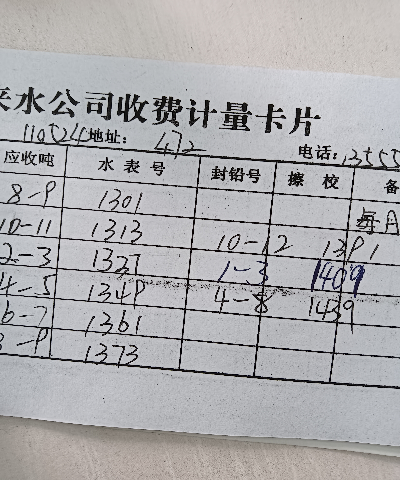 来水公司收费计量卡片
110524地址： 472 电话：13555
应收吨 水表号 封铅号 擦校 备
8-9 1301 每月
10-11 1313 10-12 1391
2-3 1327 1-3 1409
4-5 1349 4-8 1439
6-7 1361
8-9 1373